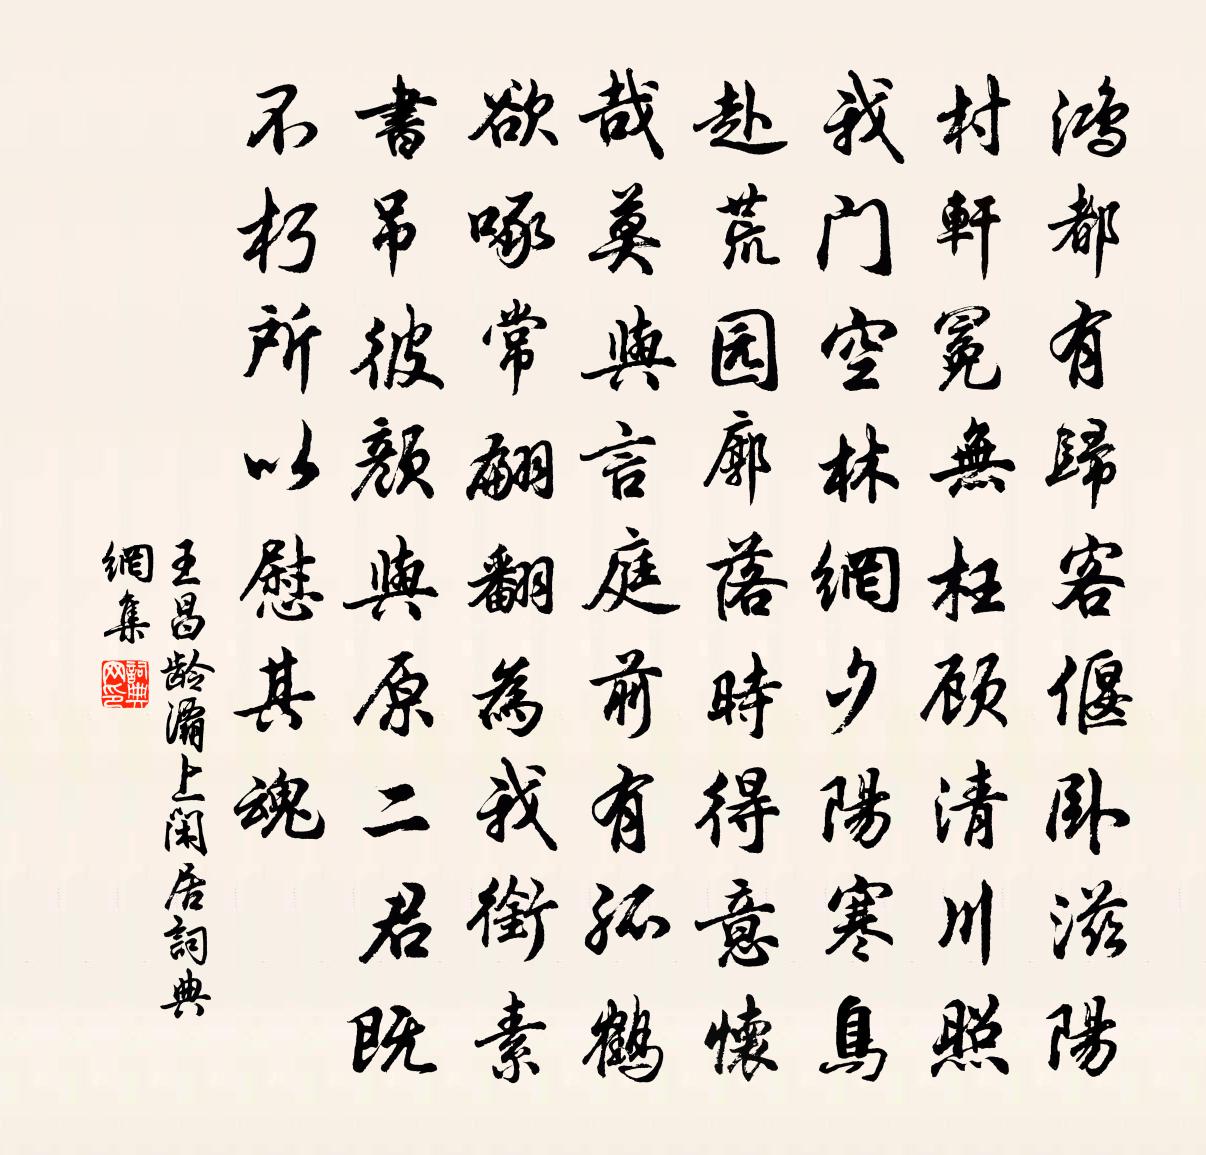 鴻都有歸客偃臥滋陽
村軒冕無枉顾清川照
我门空林網夕陽寒鳥
赴荒园廓落時得意懷
哉莫與言庭前有孤鶴
欲啄常翩翻為我銜素
書吊彼顏與原二君既
不朽所以慰其魂
王昌龄灞上闲居詞典
網集
詞典网印